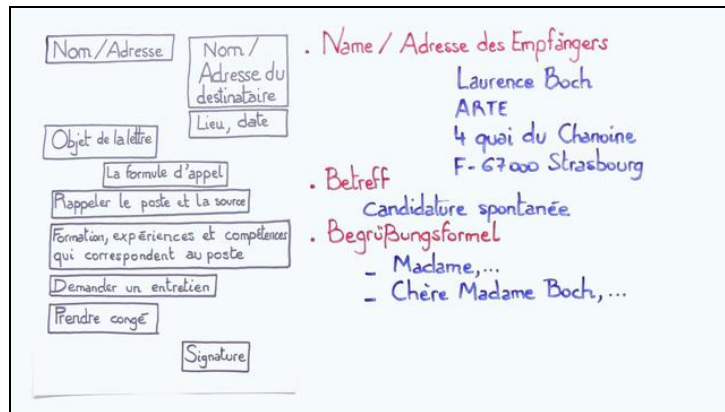 Nom/Adresse
Nom/
Adresse du
destinataire
Lieu, date
Objet de la lettre
La formule d'appel
Rappeler le poste et la source
Formation, expériences et compétences
qui correspondent au poste
Demander un entretien
Prendre congé
Signature
. Name / Adresse des Empfängers
Laurence Boch
ARTE
4 quai du Chanoine
F-67000 Strasbourg
. Betreff
Candidature spontanée
. Begrüßungsformel
_ Madame,...
_ Chère Madame Boch,...